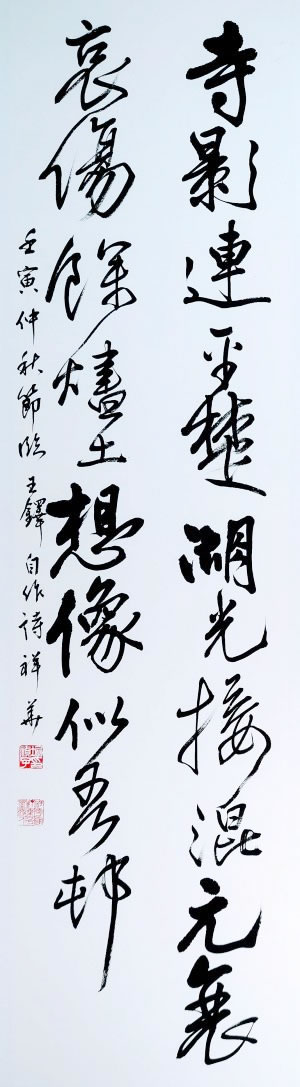 寺影連平楚湖光接混元
哀傷餘燼土想像似吾邨
壬寅仲秋節臨王鐸自作詩祥華